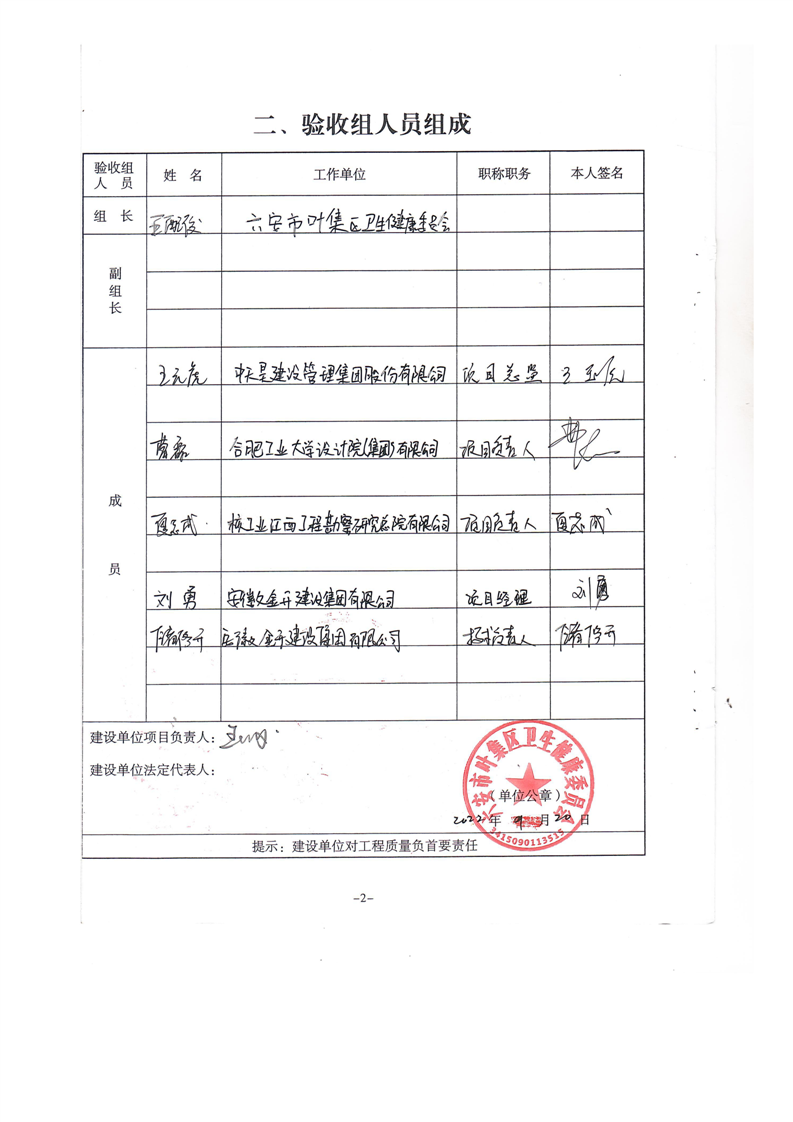 二、验收组人员组成
验收组人员 姓 名 工作单位 职称职务 本人签名
组 长 六安市叶集区卫生健康委员会
副组长
成员
王元虎 中天昊建设管理集团股份有限公司 项目总监
曹磊 合肥工业大学设计院(集团)有限公司 项目负责人
夏志成 核工业江西工程勘察研究总院有限公司 项目负责人 夏志成
刘勇 安徽金开建设集团有限公司 项目经理 刘勇
安徽金开建设集团有限公司 技术负责人
建设单位项目负责人:
建设单位法定代表人:
六安市叶集区卫生健康委员会
(单位公章)
2022年 月20日
3415090113515
提示:建设单位对工程质量负首要责任
-2-